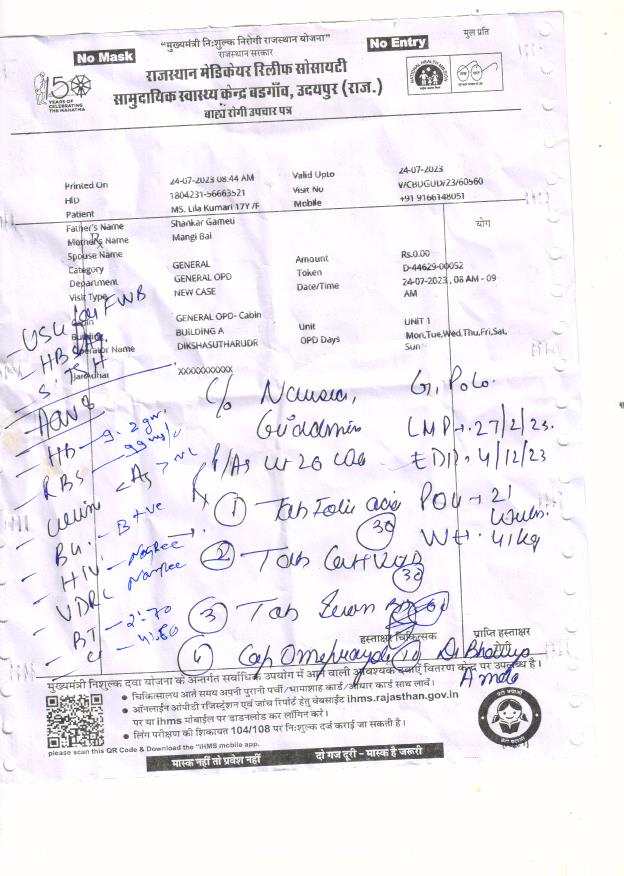 "मुख्यमंत्री निःशुल्क निरोगी राजस्थान योजना"
मुल प्रति
No Mask
राजस्थान सरकार
No Entry
राजस्थान मेडिकेयर रिलीफ सोसायटी
सामुदायिक स्वास्थ्य केन्द्र बडगाँव, उदयपुर (राज.)
बाह्य रोगी उपचार पत्र
150
YEARS OF
CELEBRATING
THE MAHATMA
Printed On 24-07-2023 08:44 AM Valid Upto 24-07-2023
HID 1804231-56663521 Visit No V/CBUGUD/23/60560
Patient MS. Lila Kumari 17Y /F Mobile +91 9166148051
Father's Name Shankar Gameti योग
Mother's Name Mangi Bai
Spouse Name
Category GENERAL Amount Rs.0.00
Department GENERAL OPD Token D-44629-00052
Visit Type NEW CASE Date/Time 24-07-2023 , 08 AM - 09 AM
GENERAL OPD- Cabin
BUILDING A Unit UNIT 1
Operator Name DIKSHASUTHARUDR OPD Days Mon,Tue,Wed,Thu,Fri,Sat,
Sun
XXXXXXXXXXX
USG FWB
HBsAg
S. TSH
HB 9.2 gm.
RBS 99
Urine
BG. B+ve
HIV.
VDRL
BT 2:70
C/o Nausea, G1P0L0
Giddiness LMP 27/2/23.
P/A EDD 4/12/23
① Tab Folic acid POG 21
30 Weeks.
② Tab Wt. 41kg
30
③ Tab
④ Cap Omeprazole 10
हस्ताक्षर चिकित्सक प्राप्ति हस्ताक्षर
मुख्यमंत्री निःशुल्क दवा योजना के अन्तर्गत सर्वाधिक उपयोग में आने वाली आवश्यक दवाई वितरण केन्द्र पर उपलब्ध है।
● चिकित्सालय आते समय अपनी पुरानी पर्ची/भामाशाह कार्ड/आधार कार्ड साथ लावें।
● ऑनलाईन ओपीडी रजिस्ट्रेशन एवं जांच रिपोर्ट हेतु वेबसाईट ihms.rajasthan.gov.in
पर या ihms मोबाईल पर डाउनलोड कर लॉगिन करें।
● लिंग परीक्षण की शिकायत 104/108 पर निःशुल्क दर्ज कराई जा सकती है।
please scan this QR Code & Download the "IHMS mobile app.
मास्क नहीं तो प्रवेश नहीं दो गज दूरी - मास्क है जरूरी